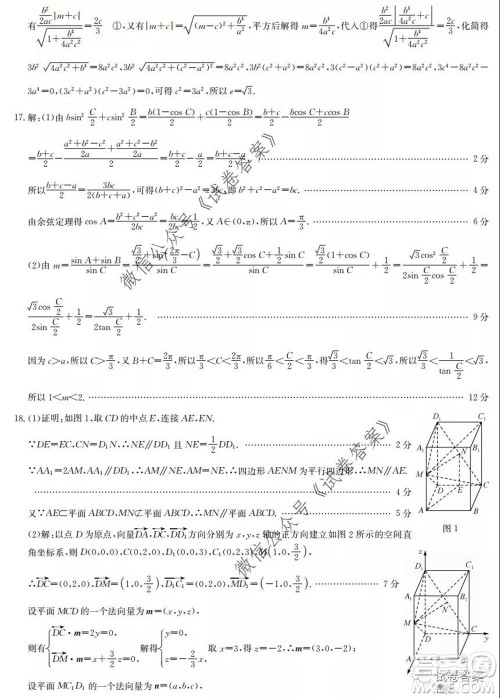 有 \frac{\frac{b^2}{2ac}|m+c|}{\sqrt{1+\frac{b^4}{4a^2c^2}}}=\frac{2c}{3} ①,又有|m+c|=\sqrt{(m-c)^2+\frac{b^4}{a^2}},平方后解得 m=\frac{b^4}{4a^2c},代入①得 \frac{\frac{b^2}{2ac}\left|\frac{b^4}{4a^2c}+c\right|}{\sqrt{1+\frac{b^4}{4a^2c^2}}}=\frac{2c}{3},化简得
3a^4=0,(3c^2+a^2)(c^2-3a^2)=0,可得 c^2=3a^2,所以 e=\sqrt{3}.
17.解:(1)由 b\sin^2\frac{C}{2}+c\sin^2\frac{B}{2}=\frac{b(1-\cos C)}{2}+\frac{c(1-\cos B)}{2}=\frac{b+c}{2}-\frac{b\cos C+c\cos B}{2}
=\frac{b+c}{2}-\frac{\frac{a^2+b^2-c^2}{2a}+\frac{a^2+c^2-b^2}{2a}}{2}=\frac{b+c}{2}-\frac{a}{2}=\frac{b+c-a}{2} 2 分
所以\frac{b+c-a}{2}=\frac{3bc}{2(b+c+a)},可得(b+c)^2-a^2=3bc,即 b^2+c^2-a^2=bc. 4 分
由余弦定理得 \cos A=\frac{b^2+c^2-a^2}{2bc}=\frac{bc}{2bc}=\frac{1}{2},又 A∈(0,π),所以 A=\frac{π}{3}. 6 分
(2)由 m=\frac{\sin A+\sin B}{\sin C}=\frac{\frac{\sqrt{3}}{2}+\sin(\frac{2π}{3}-C)}{\sin C}=\frac{\frac{\sqrt{3}}{2}+\frac{\sqrt{3}}{2}\cos C+\frac{1}{2}\sin C}{\sin C}=\frac{\sqrt{3}(1+\cos C)}{2\sin C}+\frac{1}{2}=\frac{\sqrt{3}\cos^2\frac{C}{2}}{2\sin\frac{C}{2}\cos\frac{C}{2}}+\frac{1}{2}=
\frac{\sqrt{3}\cos\frac{C}{2}}{2\sin\frac{C}{2}}+\frac{1}{2}=\frac{\sqrt{3}}{2\tan\frac{C}{2}}+\frac{1}{2}. 9 分
因为 c>a,所以 C>\frac{π}{3},又 B+C=\frac{2π}{3},所以\frac{π}{3}<C<\frac{2π}{3},所以\frac{π}{6}<\frac{C}{2}<\frac{π}{3},得\frac{\sqrt{3}}{3}<\tan\frac{C}{2}<\sqrt{3},所以\frac{\sqrt{3}}{3}<\frac{1}{\tan\frac{C}{2}}<\sqrt{3},
所以 1<m<2. 12 分
18.(1)证明:如图 1,取 CD 的中点 E,连接 AE,EN.
∵DE=EC,CN=D₁N,∴NE∥DD₁ 且 NE=\frac{1}{2}DD₁. 2 分
∵AA₁=2AM,AA₁∥DD₁,∴AM∥NE,AM=NE,∴四边形 AENM 为平行四边形,∴MN∥AE.
4 分
又∵AE⊂平面 ABCD,MN⊄平面 ABCD,∴MN∥平面 ABCD. 5 分
图 1
(2)解:以点 D 为原点,向量\overrightarrow{DA},\overrightarrow{DC},\overrightarrow{DD₁}方向分别为 x,y,z 轴的正方向建立如图 2 所示的空间直
∴\overrightarrow{DC}=(0,2,0),\overrightarrow{DM}=(1,0,\frac{3}{2}),\overrightarrow{D₁C₁}=(0,2,0),\overrightarrow{MD₁}=(-1,0,\frac{3}{2}). 7 分
设平面 MCD 的一个法向量为 m=(x,y,z),
则有{\overrightarrow{DC}·m=2y=0, \overrightarrow{DM}·m=x+\frac{3}{2}z=0, 解得{y=0, x=-\frac{3}{2}z, 取 x=3,得 z=-2,∴m=(3,0,-2).
设平面 MC₁D₁ 的一个法向量为 n=(a,b,c),
微信公众号《试卷答案》
微信公众号《试卷答案》